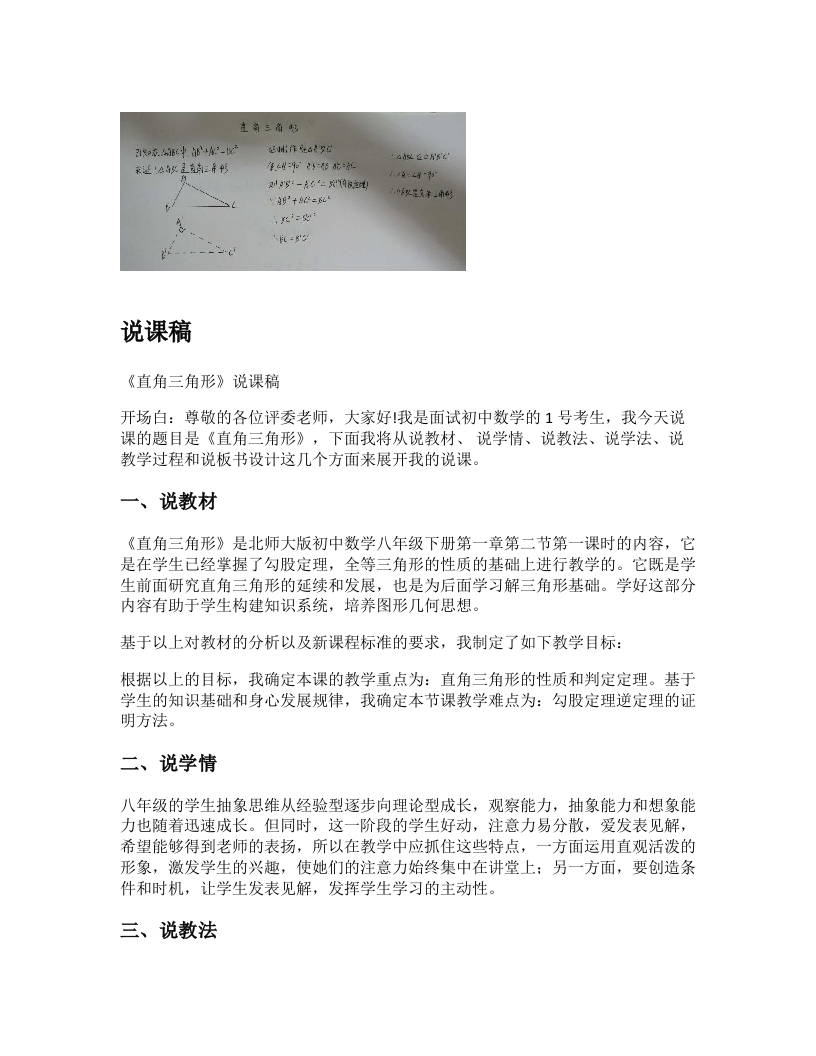 直角三角形
已知:在△ABC中 AB²+AC²=BC²
求证:△ABC是直角三角形
B
C
A'
B'
C'
证明:作Rt△A'B'C'
使∠A'=90° A'B'=AB A'C'=AC
∵AB²+AC²=BC²
∴BC²=B'C'²
∴BC=B'C'
∴△ABC≌△A'B'C'
∴∠A=∠A'=90°
∴△ABC是直角三角形
说课稿
《直角三角形》说课稿
开场白：尊敬的各位评委老师，大家好!我是面试初中数学的 1 号考生，我今天说
课的题目是《直角三角形》，下面我将从说教材、 说学情、说教法、说学法、说
教学过程和说板书设计这几个方面来展开我的说课。
一、说教材
《直角三角形》是北师大版初中数学八年级下册第一章第二节第一课时的内容，它
是在学生已经掌握了勾股定理，全等三角形的性质的基础上进行教学的。它既是学
生前面研究直角三角形的延续和发展，也是为后面学习解三角形基础。学好这部分
内容有助于学生构建知识系统，培养图形几何思想。
基于以上对教材的分析以及新课程标准的要求，我制定了如下教学目标：
根据以上的目标，我确定本课的教学重点为：直角三角形的性质和判定定理。基于
学生的知识基础和身心发展规律，我确定本节课教学难点为：勾股定理逆定理的证
明方法。
二、说学情
八年级的学生抽象思维从经验型逐步向理论型成长，观察能力，抽象能力和想象能
力也随着迅速成长。但同时，这一阶段的学生好动，注意力易分散，爱发表见解，
希望能够得到老师的表扬，所以在教学中应抓住这些特点，一方面运用直观活泼的
形象，激发学生的兴趣，使她们的注意力始终集中在讲堂上；另一方面，要创造条
件和时机，让学生发表见解，发挥学生学习的主动性。
三、说教法